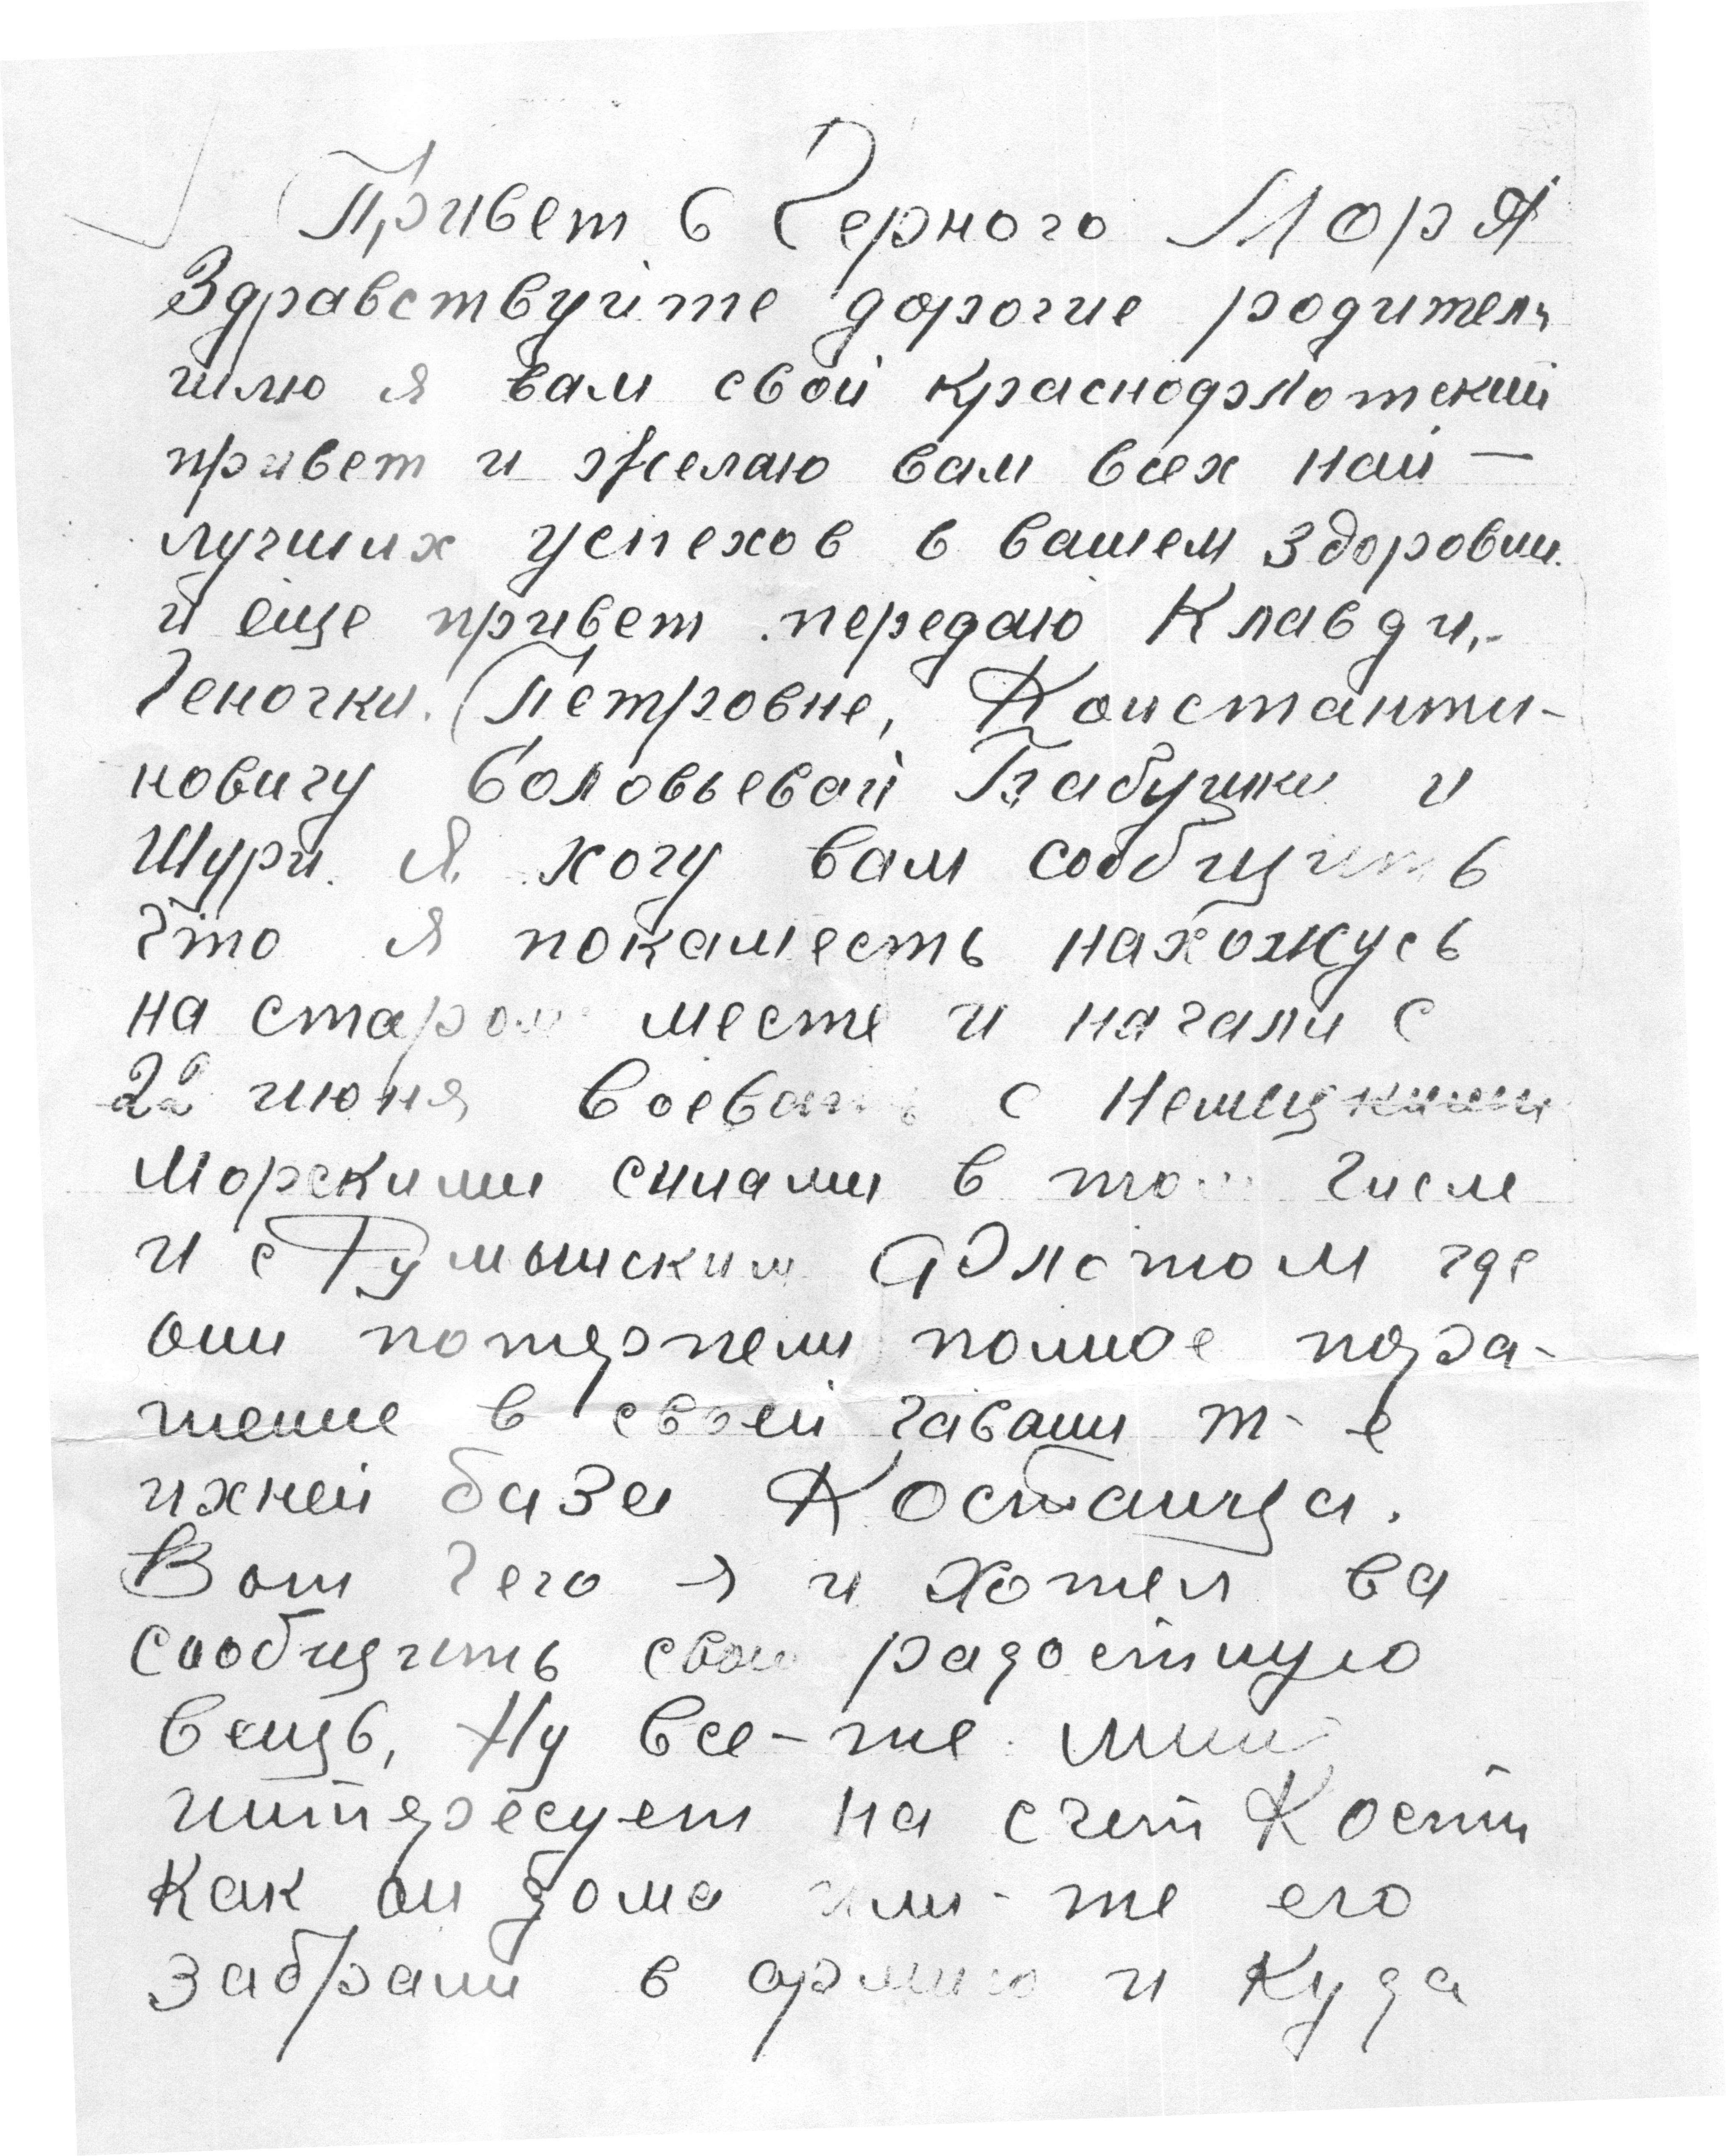 Привет с Черного Моря
Здравствуйте дорогие родители
шлю я вам свой краснофлотский
привет и желаю вам всех най-
лучших успехов в вашем здоровии.
и еще привет передаю Клавди,
Геночки. Петровне, Константи-
новичу Соловьевай Бабушки и
Шури. Я хочу вам сообщить
Что я покаместь нахожусь
на старом месте и начали с
22 июня воевать с немецкими
Морскими силами в том числе
и с Румынским Флотом где
они потерпели полное пора-
жение в своей гавани т-е
ихней базы Костанца.
Вот чего я и хотел ва
сообщить свою радостную
вещь, Ну все-же мни
интересует на счет Кости
Как он дома или-же его
забрали в армию и куда